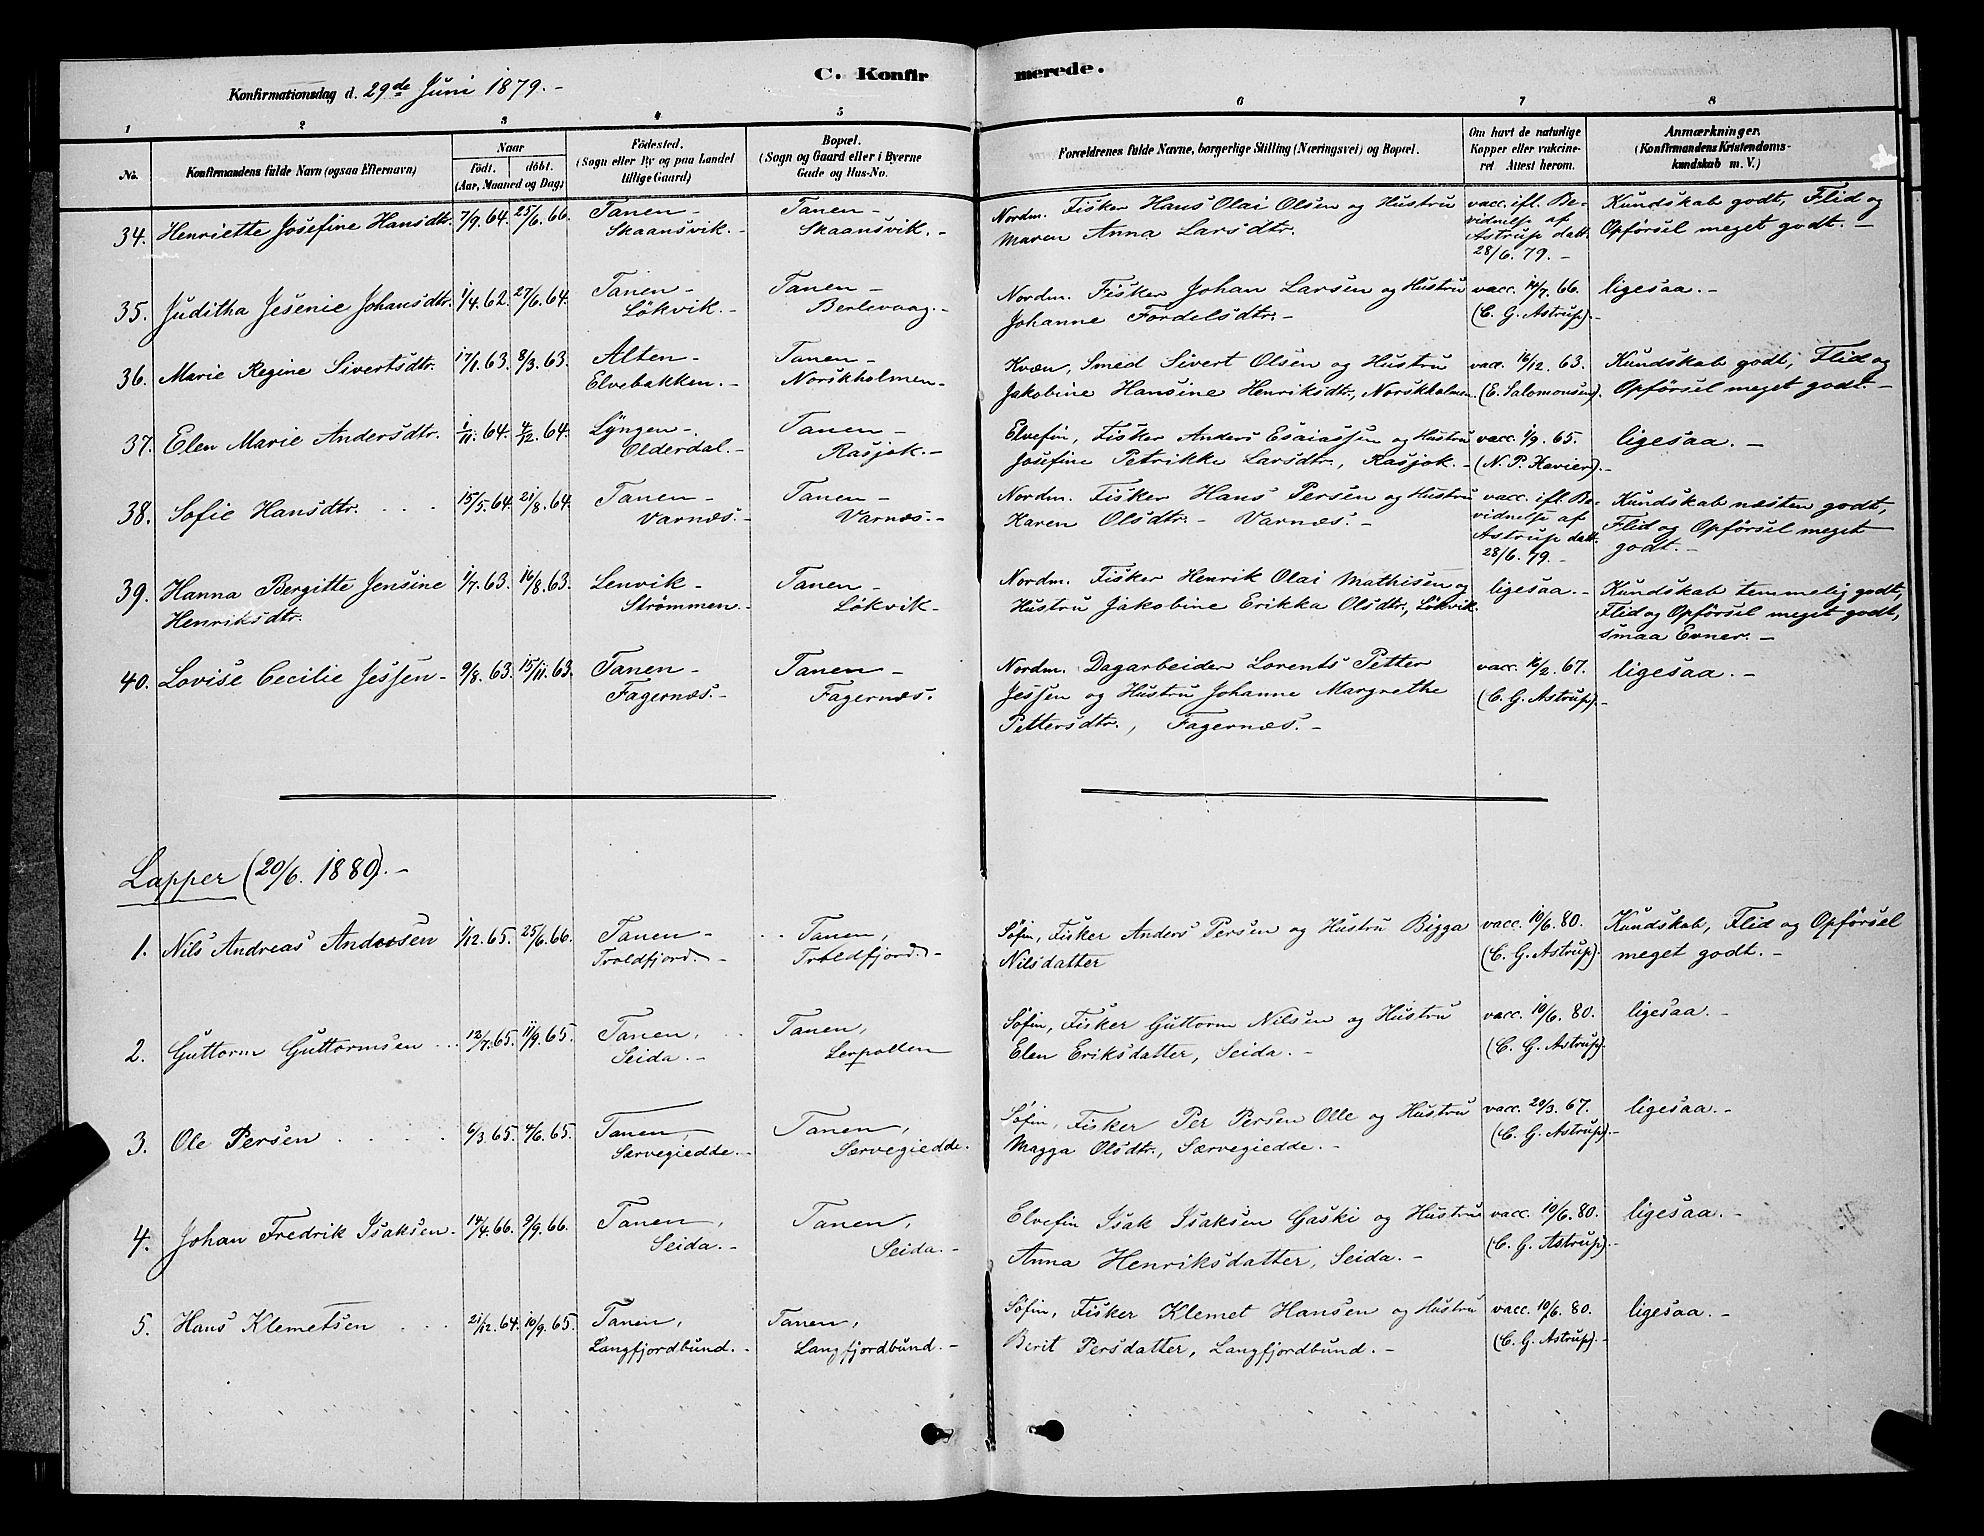 C. Konfirmerede.
Konfirmationsdag d. 29de Juni 1879.-
1 2 3 4 5 6 7 8
No.
Konfirmandens fulde Navn (ogsaa Efternavn)
Naar
Födt. döbt.
(Aar, Maaned og Dag)
Födested.
(Sogn eller By og paa Landet tillige Gaard)
Bopæl.
(Sogn og Gaard eller i Byerne Gade og Hus-No.
Forældrenes fulde Navne, borgerlige Stilling (Næringsvei) og Bopæl.
Om havt de naturlige Kopper eller vakcineret Attest herom.
Anmærkninger.
(Konfirmandens Kristendomskundskab m. V.)
34. Henriette Josefine Hansdtr. 7/9. 64. 25/6. 66. Tanen - Skaansvik.- Tanen - Skaansvik.-
Nordm. Fisker Hans Olai Olsen og Hustru
Maren Anna Larsdtr.
vacc. ifl. Be-
vidnelse af
Astrup datt.
28/6. 79.-
Kundskab godt, Flid og
Opførsel meget godt.-
35. Juditha Jesenie Johansdtr. 1/4. 62. 27/6. 64. Tanen - Løkvik.- Tanen - Berlevaag.-
Nordm. Fisker Johan Larsen og Hustru
Johanne Fordelsdtr.-
vacc. 14/7. 66.
(C. G. Astrup).-
ligesaa.-
36. Marie Regine Sivertsdtr. 17/1. 63. 8/3. 63. Alten - Elvebakken.- Tanen - Norskholmen-
Kvæn, Smed Sivert Olsen og Hustru
Jakobine Hansine Henriksdtr., Norskholmen.
vacc. 16/12. 63.
(E. Salomonsen).
Kundskab godt, Flid og
Opførsel meget godt.-
37. Elen Marie Andersdtr. 1/11. 64. 4/12. 64. Lyngen - Olderdal.- Tanen - Rasjok.-
Elvefin, Fisker Anders Esaiassen og Hustru
Josefine Petrikke Larsdtr., Rasjok.-
vacc. 1/9. 65.
(N. P. Xavier).-
ligesaa.-
38. Sofie Hansdtr. . . . 15/5. 64. 21/8. 64. Tanen - Varnæs.- Tanen - Varnæs.-
Nordm. Fisker Hans Persen og Hustru
Karen Olsdtr.- Varnæs.-
vacc. ifl. Be-
vidnelse af
Astrup datt.
28/6. 79.-
Kundskab næsten godt,
Flid og Opførsel meget
godt.-
39. Hanna Bergitte Jensine
Henriksdtr. 1/7. 63. 16/8. 63. Lenvik - Strømmen.- Tanen - Løkvik.-
Nordm. Fisker Henrik Olai Mathisen og
Hustru Jakobine Erikka Olsdtr., Løkvik.
ligesaa.-
Kundskab temmelig godt,
Flid og Opførsel meget godt,
smaa Evner.-
40. Lovise Cecilie Jessen- 9/8. 63. 15/11. 63. Tanen - Fagernæs.- Tanen - Fagernæs.
Nordm. Dagarbeider Lorents Petter
Jessen og Hustru Johanne Margrethe
Pettersdtr., Fagernæs.-
vacc. 16/2. 67.
(C. G. Astrup).-
ligesaa.-
Lapper (20/6. 1880).-
1. Nils Andreas Andersen 1/12. 65. 25/6. 66. Tanen - Troldfjord.- Tanen, Troldfjord.-
Søfin, Fisker Anders Persen og Hustru Bigga
Nilsdatter
vacc. 10/6. 80.
(C. G. Astrup).
Kundskab, Flid og Opførsel
meget godt.-
2. Guttorm Guttormsen . . 12/7. 65. 11/9. 65. Tanen, Seida.- Tanen, Lerpollen
Søfin, Fisker Guttorm Nilsen og Hustru
Elen Eriksdatter, Seida.-
vacc. 10/6. 80.
(C. G. Astrup).
ligesaa.-
3. Ole Persen . . . . 6/3. 65. 4/6. 65. Tanen, Særvegiedde.- Tanen, Særvegiedde.
Søfin, Fisker Per Persen Olle og Hustru
Magga Olsdtr., Særvegiedde.-
vacc. 20/3. 67.
(C. G. Astrup).-
ligesaa.-
4. Johan Fredrik Isaksen. 14/4. 66. 9/9. 66. Tanen, Seida.- Tanen, Seida.-
Elvefin Isak Isaksen Gaski og Hustru
Anna Henriksdatter, Seida.-
vacc. 10/6. 80.
(C. G. Astrup).
ligesaa.-
5. Hans Klemetsen . . . 21/12. 64. 10/9. 65. Tanen, Langfjordbund.- Tanen, Langfjordbund.-
Søfin, Fisker Klemet Hansen og Hustru
Berit Persdatter, Langfjordbund.-
vacc. 10/6. 80.
(C. G. Astrup).-
ligesaa.-